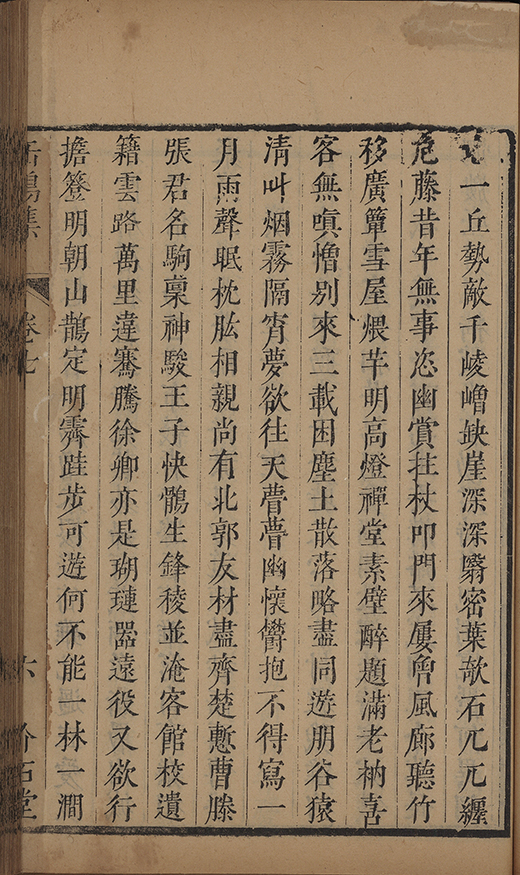 一丘勢敵千崚嶒缺崖深深翳密葉欹石兀兀纏
危藤昔年無事恣幽賞拄杖叩門來屢曾風廊聽竹
移廣簟雪屋煨芋明高燈禪堂素壁醉題滿老衲喜
客無嗔憎别來三載困塵土散落略盡同遊朋谷猿
清叫烟霧隔宵夢欲往天瞢瞢幽懷鬱抱不得寫一
月雨聲眠枕肱相親尚有北郭友材盡齊楚慙曹滕
張君名駒稟神駿王子快鶻生鋒稜並淹客館校遺
籍雲路萬里違騫騰徐卿亦是瑚璉器遠役又欲行
擔簦明朝山鵲定明霽跬步可遊何不能一林一澗
缶鳴集
卷七
六
堂